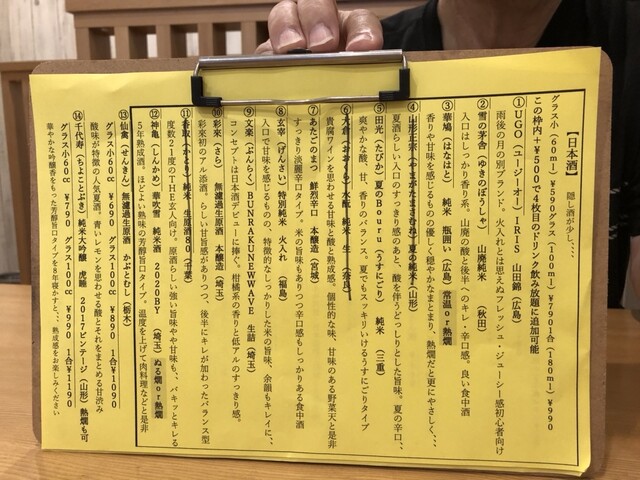 【日本酒】 隠し酒が少し、、、
グラス小(60ml)¥590グラス(100ml)¥790 1合(180ml)¥990
この枠内+¥500で4枚目のドリンク飲み放題に追加可能
①UGO(ユージーオー)IRIS 山田錦(広島)
雨後の月の別ブランド。火入れとは思えぬフレッシュ・ジューシー感初心者向け
②雪の茅舎(ゆきのぼうしゃ) 山廃純米 (秋田)
入口はしっかり香り系、山廃の酸と後半へのキレ・辛口感。良い食中酒
③華鳩(はなはと) 純米 瓶囲い(広島)常温or熱燗
香りや甘味を感じるものの優しく穏やかなまとまり、熱燗だと更にやさしく、、、
④山形正宗(やまがたまさむね)夏の純米(山形)
夏酒らしい入口のすっきり感のあと、酸を伴うどっしりとした旨味。夏の辛口、、
⑤田光(たびか)夏のBouru(うすにごり) 純米 (三重)
爽やかな酸、甘、香りのバランス。夏でもスッキリいけるうすにごりタイプ
⑥大倉(おおくら)水酛 純米 生 (奈良)
貴腐ワインを思わせる甘味と酸と熟成感。個性的な味、甘味のある野菜天と是非
⑦あたごのまつ 鮮烈辛口 本醸造(宮城)
すっきり淡麗辛口タイプ。米の旨味もありつつ辛口感もしっかりある食中酒
⑧玄宰(げんさい)特別純米 火入れ (福島)
入口で甘味を感じるものの、特徴的なしっかりした米の旨味、余韻もキレイに、、
⑨文楽(ぶんらく)BUNRAKUNEWWAVE 生詰(埼玉)
コンセプトは日本酒デビューに捧ぐ。柑橘系の香りと低アルのすっきり感。
⑩彩來(さら) 無濾過生原酒 本醸造(埼玉)
彩來初のアル添酒。らしい甘旨感がありつつ、後半にキレが加わったバランス型
⑪香取(かとり) 純米 生原酒80(千葉)
度数21度のTHE玄人向け。原酒らしい強い旨味や甘味も、、バキッとキレる
⑫神亀(しんかめ)華吹雪 純米酒 2020BY (埼玉)ぬる燗or熱燗
5年熟成酒。ほどよい熟味の芳醇旨口タイプ。温度を上げて肉料理などと是非
⑬仙禽(せんきん) 無濾過生原酒 かぶとむし(栃木)
グラス小60cc ¥690 グラス100cc ¥890 1合¥1090
酸味が特徴の人気夏酒。青いレモンを思わせる酸とそれをまとめる甘渋み
⑭千代寿(ちよことぶき)純米大吟醸 虎睡 2017ビンテージ(山形)熱燗も可
グラス小60cc ¥790 グラス100cc ¥990 1合¥1190
華やかな吟醸香をもった芳醇旨口タイプを8年寝かすと、、熟成感をお楽しみください